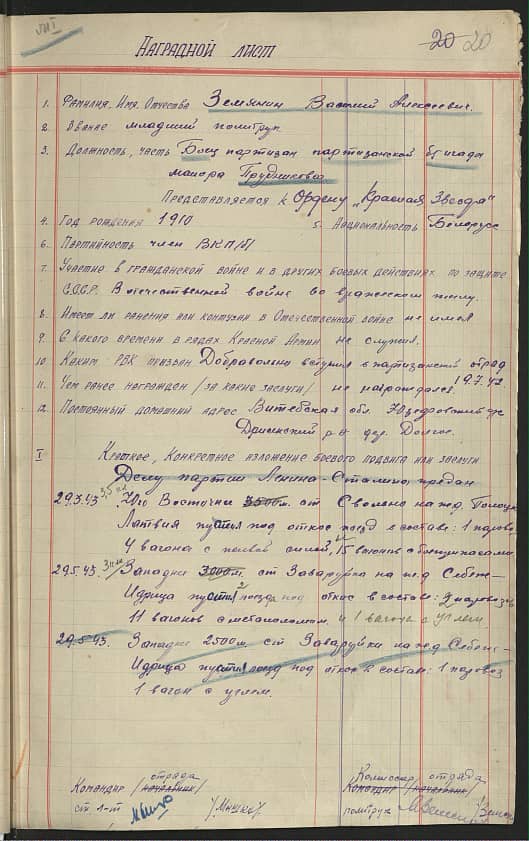 20 20
НАГРАДНОЙ ЛИСТ
1. Фамилия, Имя, Отчество Земянин Василий Алексеевич.
2. Звание младший политрук
3. Должность, часть Боец партизан партизанской бригады
майора Прудникова
Представляется к Ордену „Красная Звезда"
4. Год рождения 1910 5. Национальность Белорус
6. Партийность член ВКП/б/
7. Участие в гражданской войне и в других боевых действиях по защите
С.С.С.Р. В отечественной войне во вражеском тылу.
8. Имеет ли ранения или контузии в Отечественной войне не имел
9. С какого времени в рядах Красной Армии не служил.
10. Каким РВК призван Добровольно вступил в партизанский отряд
19.7.42.
11. Чем ранее награжден /за какие заслуги/ не награждался.
12. Постоянный домашний адрес Витебская обл.
Дрисенский р-н дер. Долгое.
I Краткое, конкретное изложение боевого подвига или заслуги
Делу партии Ленина-Сталина предан
29.3.43 3,5 км Юго Восточнее 3500м. ст Свольно на жд. Полоцк
Латвия пустил под откос поезд в составе: 1 паровоз
4 вагона с живой силой, и 15 вагонов с боеприпасами.
29.5.43. 3 км Западнее 3000м. ст Заваруйка на жд Себеж-
Идрица пустил поезд под откос в составе: 2 паровоза
11 вагонов с металоломом. и 1 вагона с углем
29.5.43. Западнее 2500м. ст Заваруйка на жд Себеж-
Идрица пустил поезд под откос в составе: 1 паровоз
1 вагон с углем.
Командир отряда /начальник/
ст. л-т /Мышко/
Комиссар отряда
Командир /начальник/
политрук